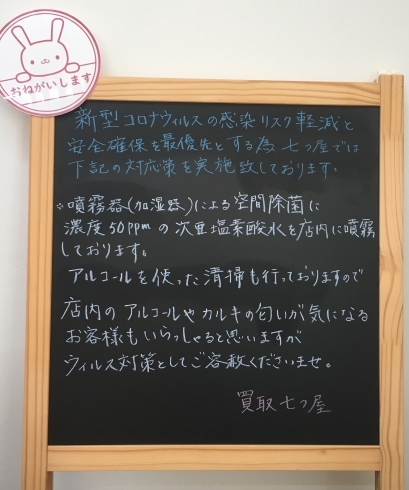 おねがいします
新型コロナウィルスの感染リスク軽減と
安全確保を最優先とする為 七つ屋では
下記の対応策を実施致しております。
※噴霧器(加湿器)による空間除菌に
濃度50ppmの次亜塩素酸水を店内に噴霧
しております。
アルコールを使った清掃も行っておりますので
店内のアルコールやカルキの匂いが気になる
お客様もいらっしゃると思いますが
ウィルス対策としてご容赦くださいませ。
買取七つ屋